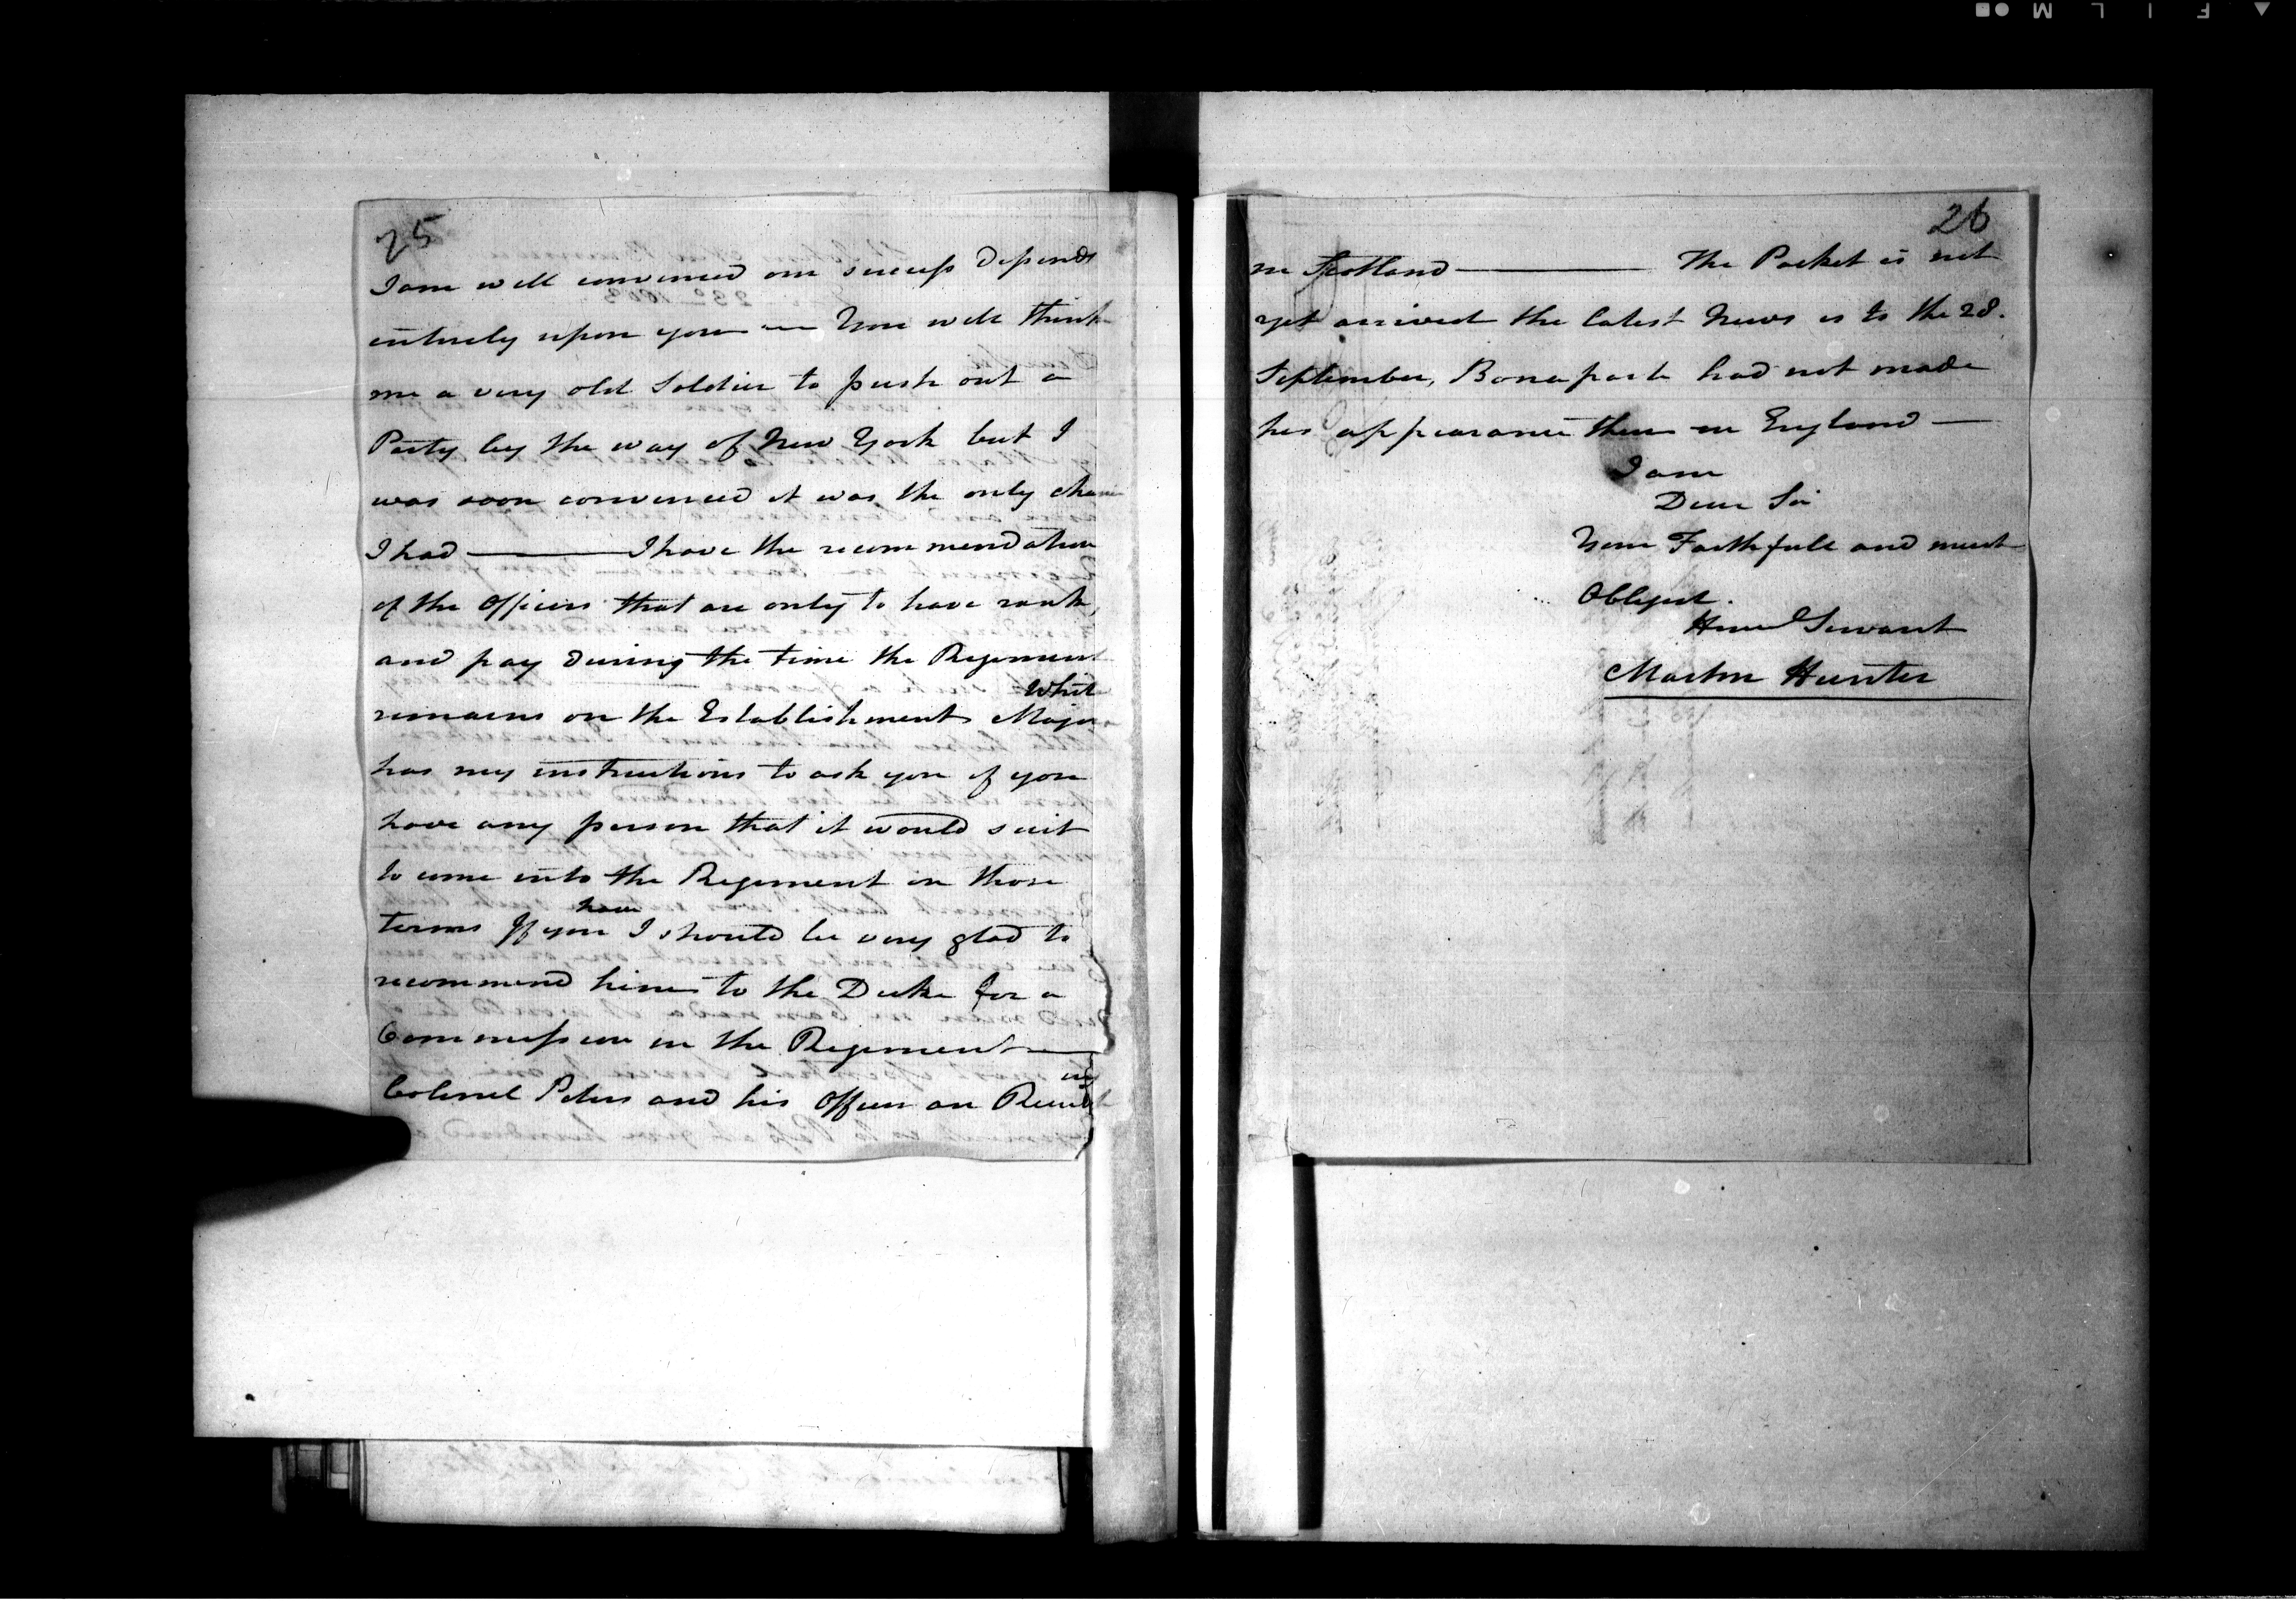 25
I am well convinced our success Depends
entirely upon you — You will think
me a very old Soldier to push out a
Party by the way of New York but I
was soon convinced it was the only chance
I had ——— I have the recommendation
of the Officers that are only to have rank,
and pay During the time the Regiment
White
remains on the Establishment Major
has my instructions to ask you if you
have any person that it would suit
to come into the Regiment on those
have
terms If you I should be very glad to
recommend him to the Duke for a
Commission in the Regiment —
ing
Colonel Peters and his Officers are Recruit
26
in Scotland ——— The Packet is not
yet arrived the latest News is to the 28.
September, Bonaparte had not made
his appearance then in England —
I am
Dear Sir
Your Faithfull and much
Obliged.
Huml Servant
Martin Hunter
FILM